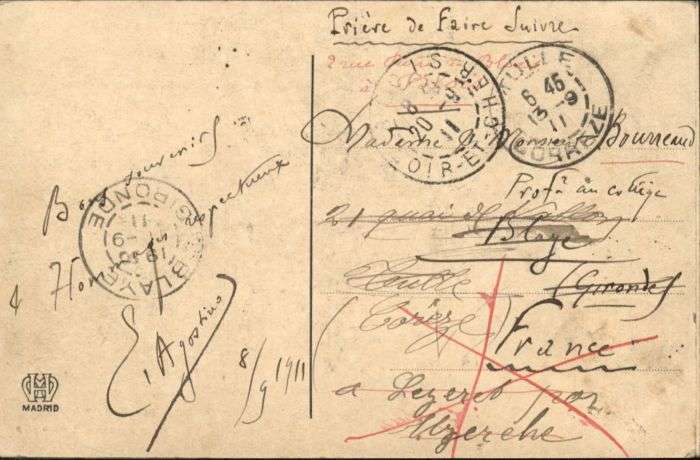 Prière de Faire Suivre
2 rue
à
BLOIS
8
20 -9
11
LOIR-ET-CHER
TULLE
6 45
13 -9
11
CORRÈZE
Madame & Monsieur Bourreaud
Profr au collège
21 quai de
Blaye
Tulle
(Gironde)
(Corrèze)
France
a Lezeret par
Uzerche
Bons souvenirs
& Hommages respectueux
E. Agostino
8/9 1911
BLAYE
19
-9
11
GIRONDE
MADRID